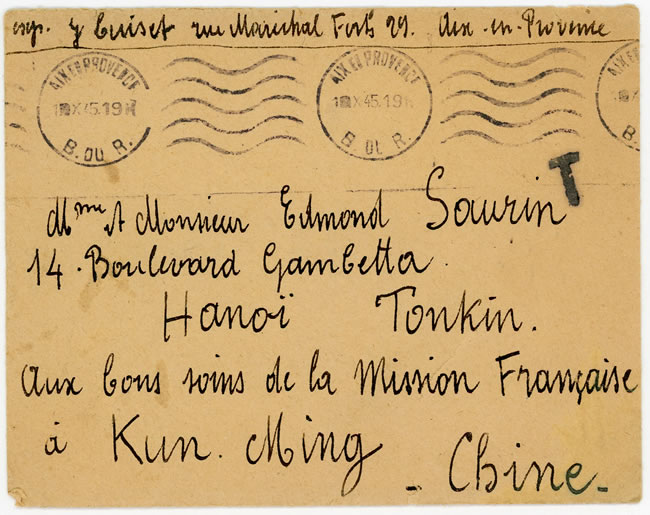 exp. y Cuiset rue Maréchal Foch 29. Aix-en-Provence
AIX EN PROVENCE AIX EN PROVENCE
X 45.19H X 45.19H
B. DU R. B. DU R. B.
T
Mme et Monsieur Edmond Saurin
14. Boulevard Gambetta.
Hanoï Tonkin.
Aux bons soins de la Mission Française
à Kun. Ming
- Chine -